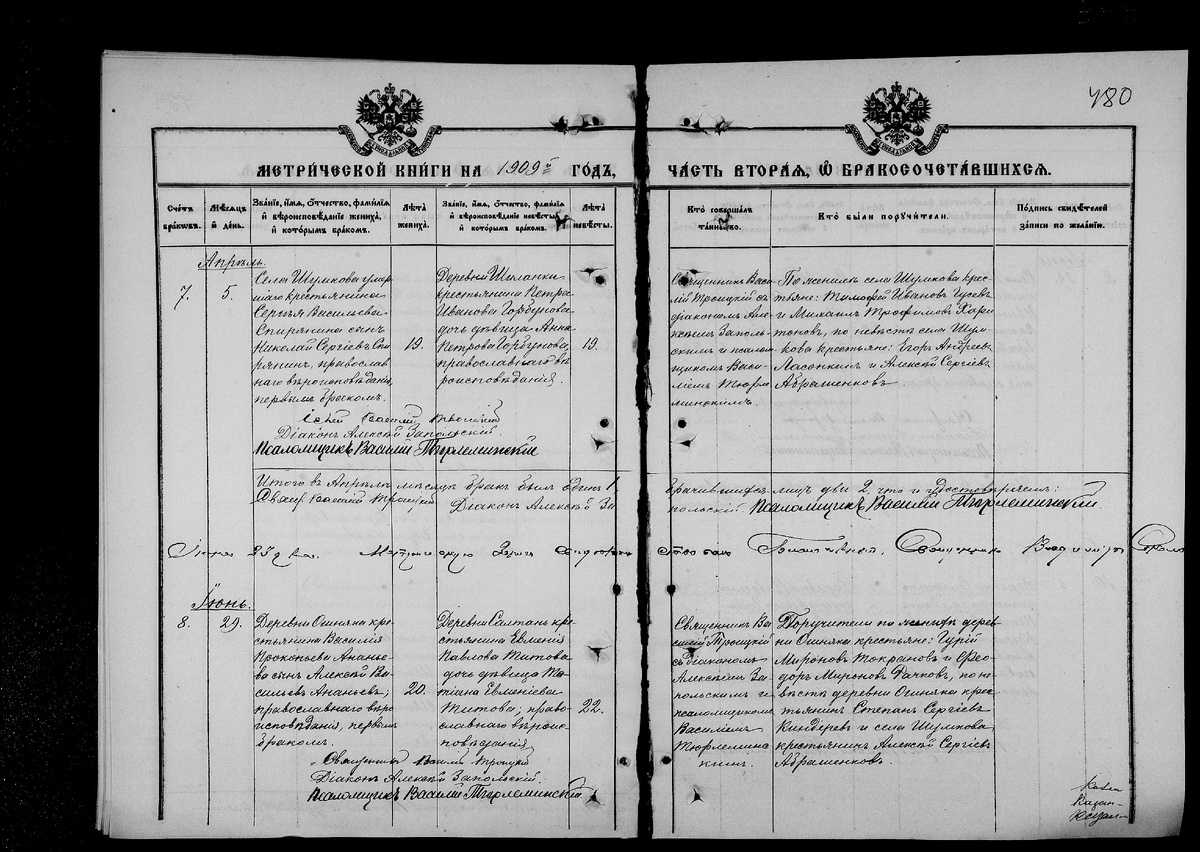 480
МЕТРИЧЕСКОЙ КНИГИ НА 1909й ГОДЪ,
ЧАСТЬ ВТОРАЯ, Ѿ БРАКОСОЧЕТАВШИХСЯ.
Счетъ браковъ.
Мѣсяцъ и день.
Званіе, имя, отчество, фамилія и вѣроисповѣданіе жениха, и которымъ бракомъ.
Лѣта жениха.
Званіе, имя, отчество, фамилія и вѣроисповѣданіе невѣсты, и которымъ бракомъ.
Лѣта невѣсты.
Кто совершалъ таинство.
Кто были поручители.
Подпись свидѣтелей записи по желанію.
Апрѣль.
7.
5.
Села Шумкова умер
шаго крестьянина
Сергѣя Васильева
сынъ
Николай Сергѣевъ
православ
наго вѣроисповѣданія,
первымъ бракомъ.
19.
Деревни
крестьянина Петра
Иванова Горбунова
дочь дѣвица Анна
Петрова Горбунова,
православнаго вѣ
роисповѣданія.
19.
Священник Васи
лій Троицкій съ
діакономъ Але
ксѣемъ Заполь
скимъ и псалом
щикомъ Васи
ліемъ Тюрле
минскимъ.
По женихѣ села Шумкова кре
стьяне: Тимофей Ивановъ Гусевъ
и Михаилъ Трофимовъ Хари
тоновъ, по невѣстѣ села Шум
кова крестьяне: Егоръ Андреевъ
Ласонкинъ и Алексѣй Сергѣевъ
Абрашенковъ.
Іерей Василій Троицкій
Діаконъ Алексѣй Запольскій.
Псаломщикъ Василій Тюрлеминскій
Итого въ Апрѣлѣ мѣсяцѣ бракъ былъ одинъ 1.
брачившихся лицъ два 2, что и удостовѣряемъ:
Свящ. Василій Троицкій Діаконъ Алексѣй За
польскій. Псаломщикъ Василій Тюрлеминскій.
Іюня 25 дня.
Благочинный, Священникъ
Іюнь.
8.
29.
Деревни Ошняка кре
стьянина Василія
Прокопьева Ананье
ва сынъ Алексѣй Ва
сильевъ Ананьевъ;
православнаго вѣро
исповѣданія, первымъ
бракомъ.
20.
Деревни Салтанъ кре
стьянина Евменія
Павлова Титова
дочь дѣвица Та
тіана Евменіева
Титова; право
славнаго вѣроис
повѣданія,
22.
Священникъ Ва
силій Троицкій
съ діакономъ
Алексѣемъ За
польскимъ и
псаломщикомъ
Василіемъ
Тюрлемин
скимъ.
Поручители по женихѣ дерев
ни Ошняка крестьяне: Гурій
Мироновъ Токрановъ и Ѳео
доръ Мироновъ Рачковъ, по не
вѣстѣ деревни Ошняка крес
тьянинъ Степанъ Сергѣевъ
Киндеревъ и села Шумкова
крестьянинъ Алексѣй Сергѣевъ
Абрашенковъ.
Священникъ Василій Троицкій
Діаконъ Алексѣй Запольскій.
Псаломщикъ Василій Тюрлеминскій